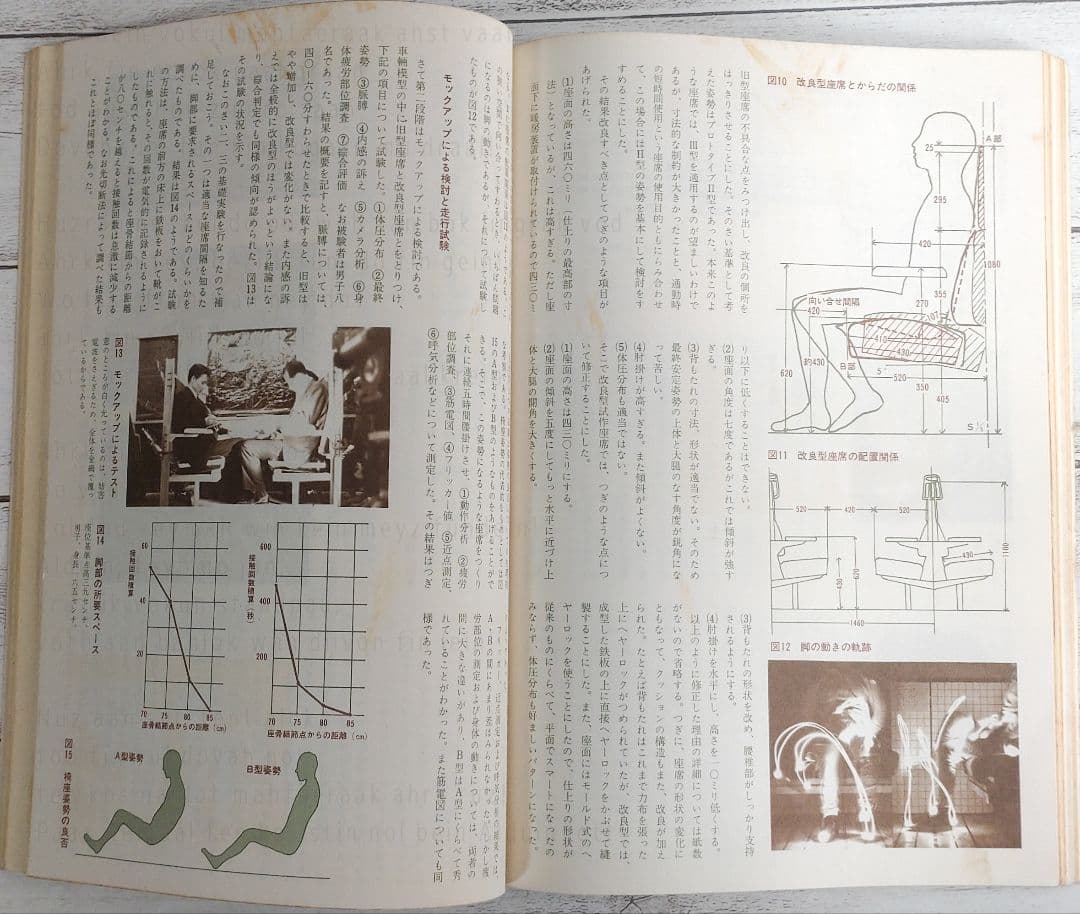 図10 改良型座席とからだの関係
A部
25
295
420
1080
355
270
107
向い合せ間隔
420
410
430
B部
約430
620
5°
520
350
405
520
S 1/6
図11 改良型座席の配置関係
520
420
520
430
1460
図12 脚の動きの軌跡
旧型座席の不具合な点をみつけ出し、改良の個所を
はっきりさせることにした。そのさい基準として考
えた姿勢はプロトタイプⅡ型であった。本来このよ
うな座席では、Ⅲ型を適用するのが望ましいわけで
あるが、寸法的な制約が大きかったことと、通勤時
の短時間使用という座席の使用目的ともにらみ合わせ
て、この場合にはⅡ型の姿勢を基本にして検討をす
すめることにした。
その結果改良すべき点としてつぎのような項目が
あげられた。
(1)座面の高さは四六〇ミリ（仕上りの最高部の寸
法）となっているが、これは高すぎる。ただし座
面下に暖房装置が取付けられているので四三〇ミ
リ以下に低くすることはできない。
(2)座面の角度は七度であるがこれでは傾斜が強す
ぎる。
(3)背もたれの寸法、形状が適当でない。そのため
最終安定姿勢の上体と大腿のなす角度が鋭角にな
って苦しい。
(4)肘掛けが高すぎる。また傾斜がよくない。
(5)体圧分布も適当ではない。
そこで改良型試作座席では、つぎのような点につ
いて修正することにした。
(1)座面の高さは四三〇ミリにする。
(2)座面の傾斜を五度にしてもっと水平に近づけ上
体と大腿の開角を大きくする。
(3)背もたれの形状を改め、腰椎部がしっかり支持
されるようにする。
(4)肘掛けを水平にし、高さを一〇ミリ低くする。
以上のように修正した理由の詳細については紙数
がないので省略する。つぎに、座席の形状の変化に
ともなって、クッションの構造もまた、改良が加え
られた。たとえば背もたれはこれまで力布を張った
上にヘヤーロックがつめられていたが、改良型では、
成型した鉄板の上に直接ヘヤーロックをかぶせて縫
製することにした。また、座面にはモールド式のヘ
ヤーロックを使うことにしたので、仕上りの形状が
従来のものにくらべて、平面でスマートになったの
みならず、体圧分布も好ましいパターンになった。
になるのは脚の動きであるが、それについて試験し
たものが図12である。
モックアップによる検討と走行試験
さて第二段階はモックアップによる検討である。
車輛模型の中に旧型座席と改良型座席とをとりつけ、
下記の項目について試験した。①体圧分布 ②最終
姿勢 ③脈膊 ④内感の訴え ⑤カメラ分析 ⑥身
体疲労部位調査 ⑦綜合評価 なお被験者は男子八
名であった。結果の概要を記すと、脈膊については、
四〇―六〇分すわらせたときで比較すると、旧型は
やや増加し、改良型では変化がない。また内感の訴
えでは全般的に改良型のほうがよいという結論にな
り、綜合判定でも同様の傾向が認められた。図13は
その試験の状況を示す。
なおこのさい二、三の基礎実験を行なったので補
足しておこう。その一つは適当な座席間隔を知るた
めに、脚部に要求されるスペースはどのくらいかを
調べたものである。結果は図14のようである。試験
の方法は、座席の前方の床上に鉄板をおいて靴がこ
れに触れると、その回数が電気的に記録されるように
したものである。これによると座骨結節からの距離
が八〇センチを越えると接触回数は急激に減少する
ことがわかる。なお光切断法によって調べた結果も
これとほぼ同様であった。
図13 モックアップによるテスト
窓のところが白く光っているのは、妨害
電波をさえぎるため、全体を金網で覆っ
ているからである。
図14 脚部の所要スペース
座位基準点高三九センチ、
男子、身長一六五センチ。
接触回数積算
60
40
20
70 75 80 85
座骨結節点からの距離 (cm)
接触回数積算（秒）
600
400
200
70 75 80 85
座骨結節点からの距離 (cm)
図15 椅座姿勢の良否
A型姿勢
B型姿勢
15のA型およびB型のようなものをあげることがで
きる。そこで、この姿勢になるような座席をつくり
それに連続五時間腰掛けさせ、①動作分析 ②疲労
部位調査、③筋電図、④フリッカー値 ⑤近点測定、
⑥呼気分析などについて測定した。その結果はつぎ
A・Bの間にあまり差はみられなかった。しかし疲
労部位の測定および身体の動きについては、両者の
間に大きな違いがあり、B型はA型にくらべて秀
れていることがわかった。また筋電図についても同
様であった。